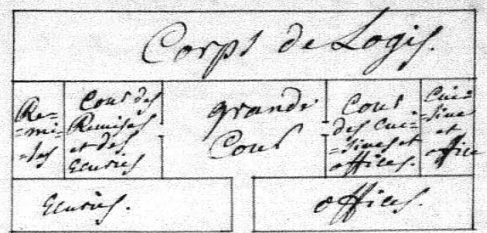 Corps de Logis.
Re=
=mi=
=ses
Cour des
Remises
et des
Ecuries
grande
Cour
Cour
des Cui=
=sines et
offices.
Cui=
=sine
et
office
Ecuries.
offices.